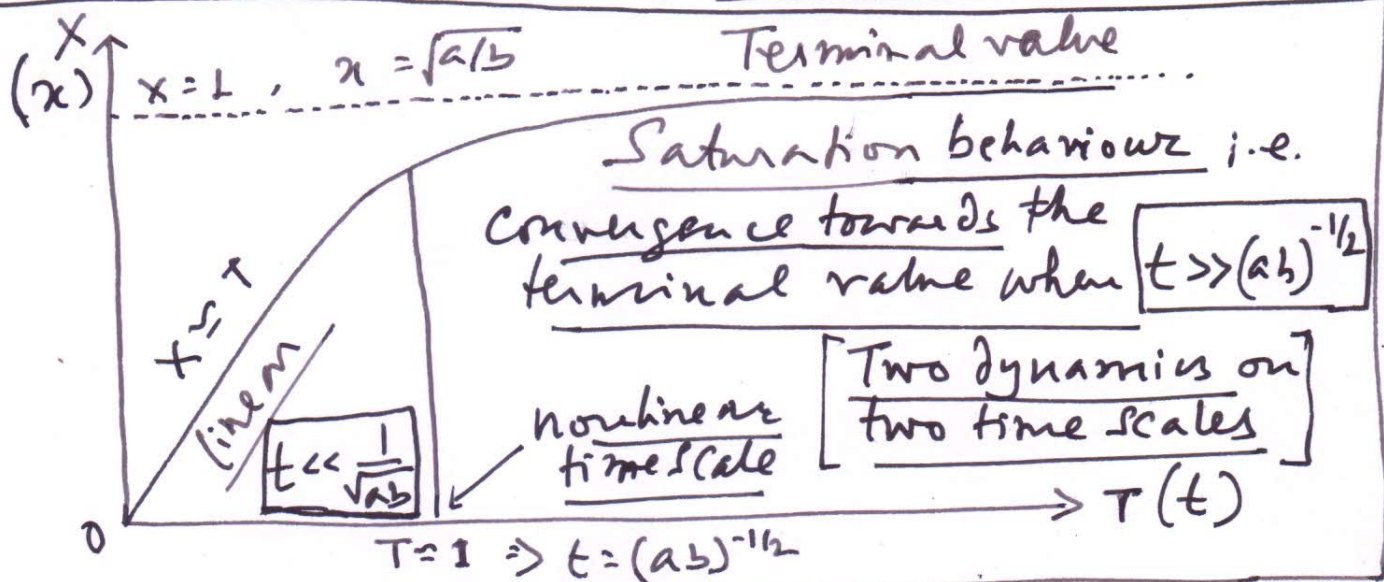 X
(x)
X = 1, x = √a/b
Terminal value
Saturation behaviour i.e.
convergence towards the
terminal value when t >> (ab)^{-1/2}
X ≃ T
linear
t << 1/√ab
nonlinear
time scale
[Two dynamics on
two time scales]
T (t)
0
T = 1 ⇒ t = (ab)^{-1/2}